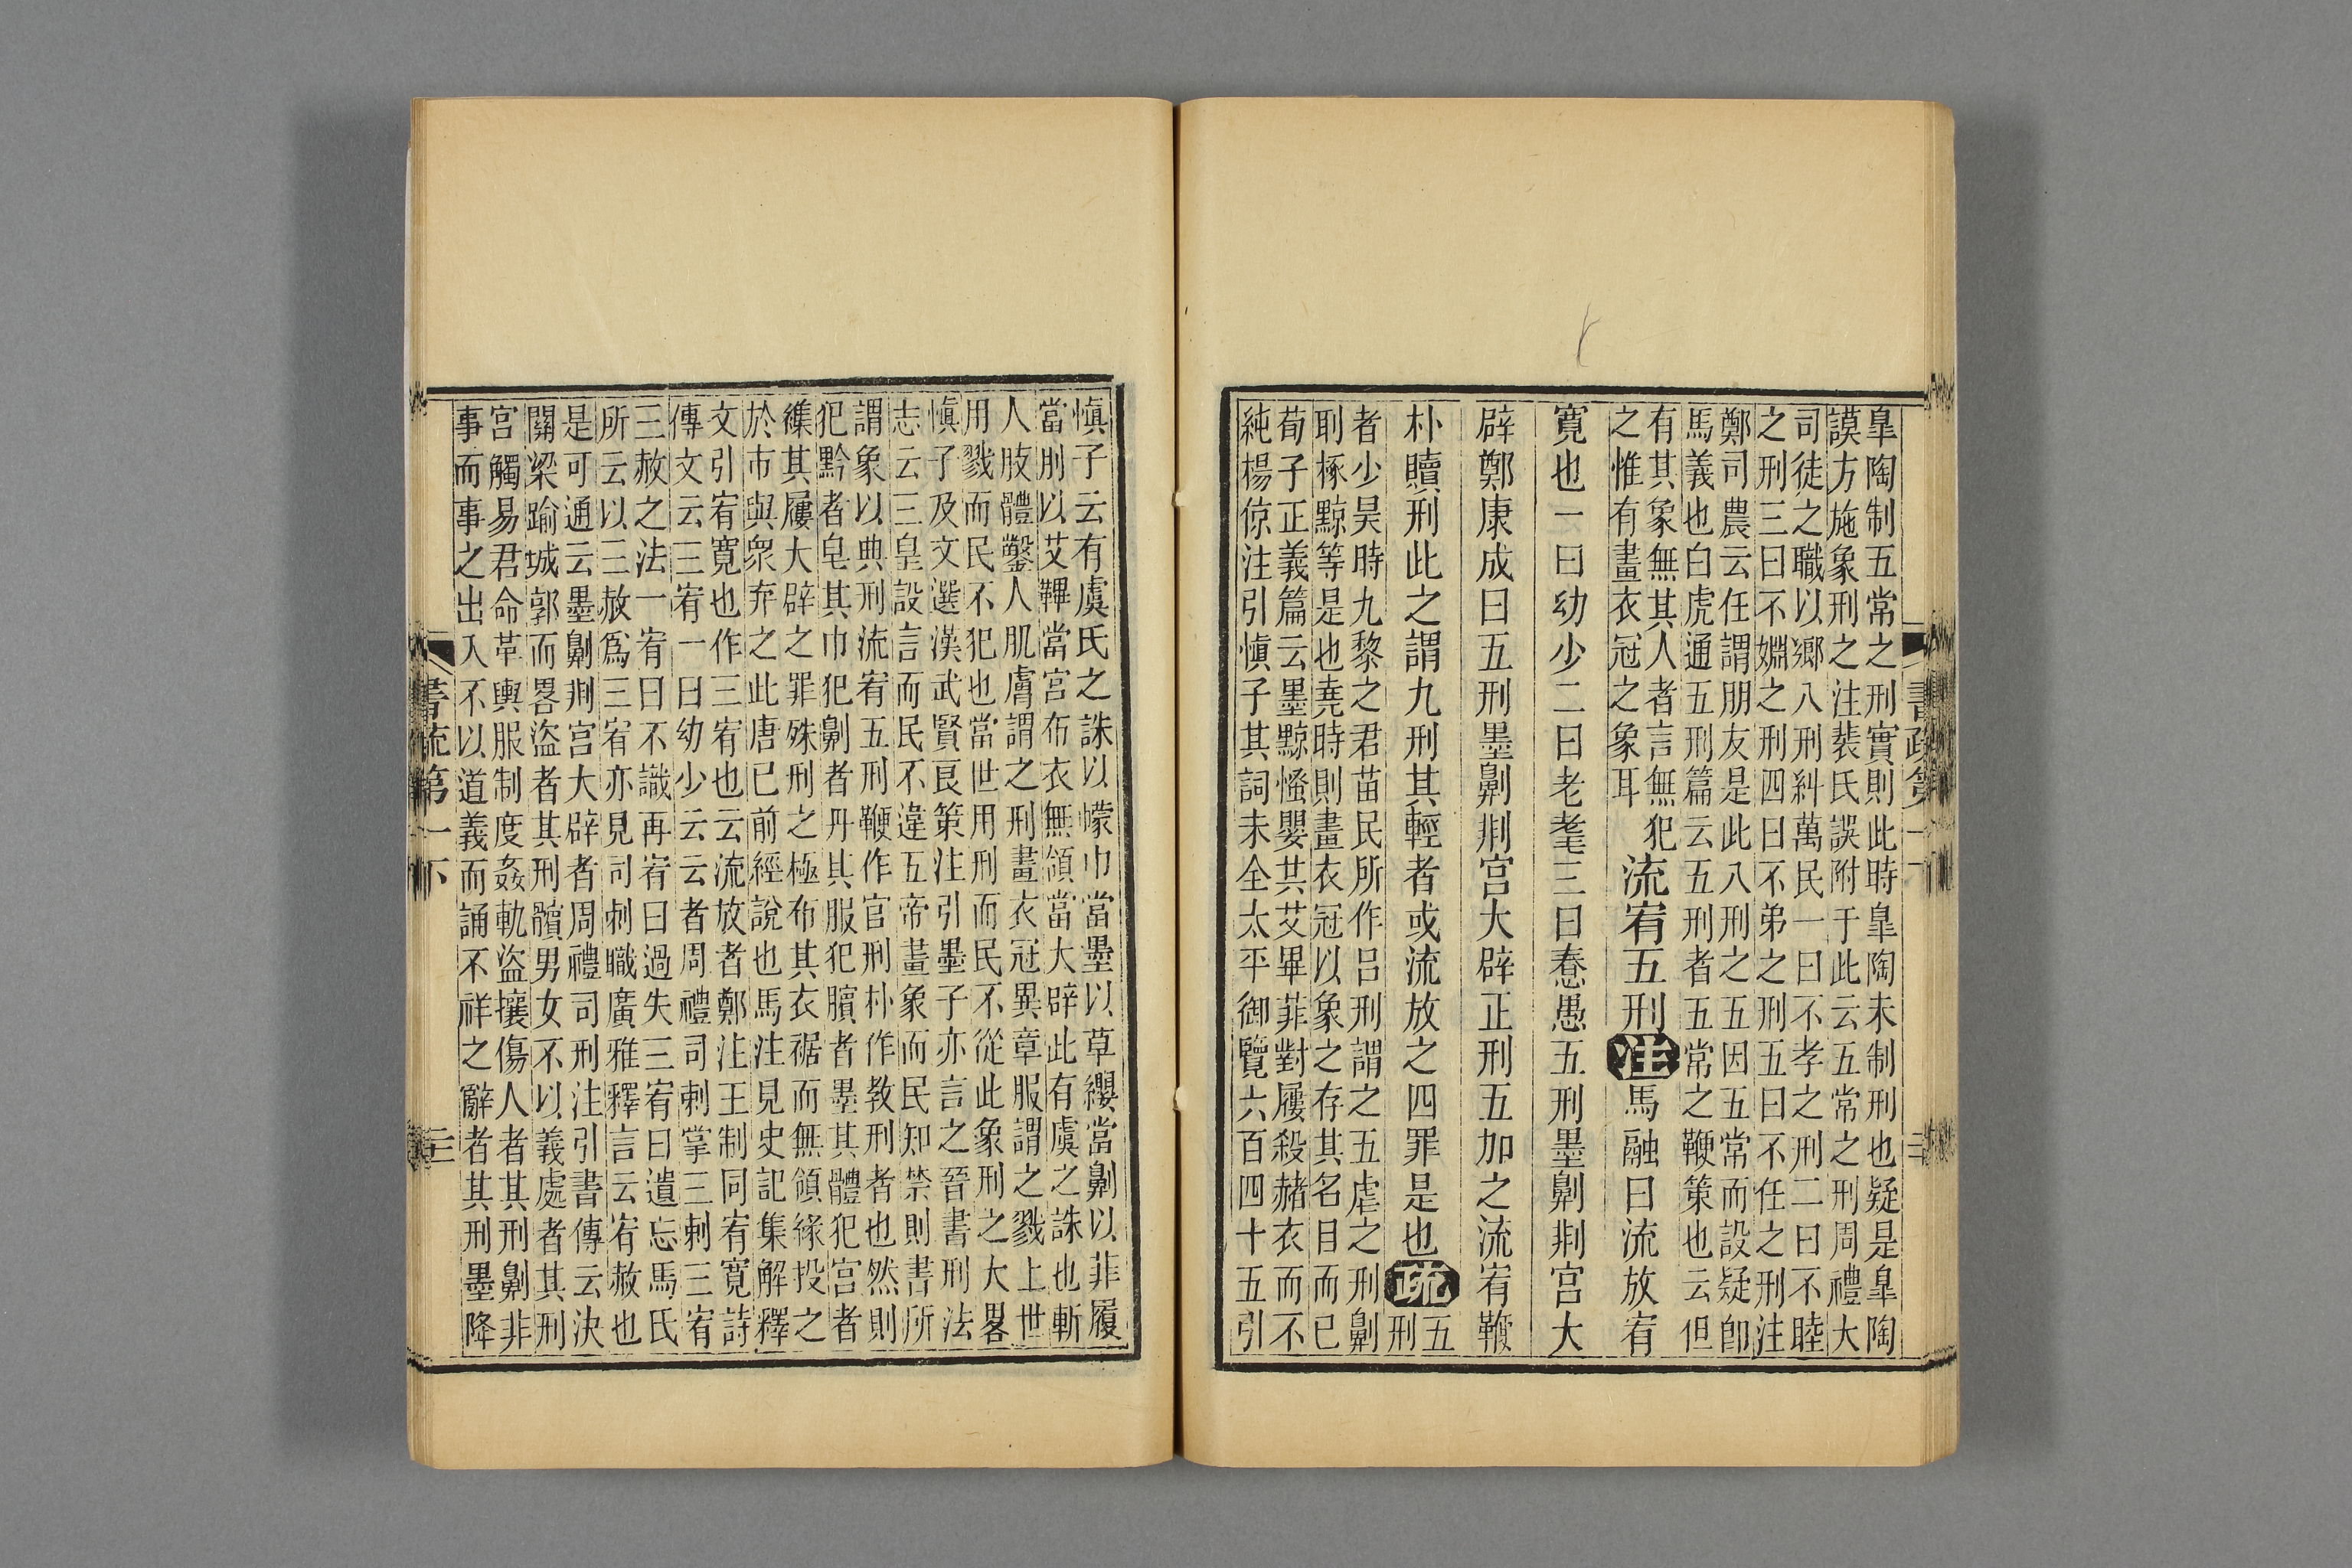 皐陶制五常之刑實則此時皐陶未制刑也疑是皐陶
謨方施象刑之注裴氏誤附于此云五常之刑周禮大
司徒之職以鄉八刑糾萬民一曰不孝之刑二曰不睦
之刑三曰不婣之刑四曰不弟之刑五曰不任之刑注
鄭司農云任謂朋友是此八刑之五因五常而設疑卽
馬義也白虎通五刑篇云五刑者五常之鞭策也云但
有其象無其人者言無犯
之惟有畫衣冠之象耳
流宥五刑注馬融曰流放宥
寬也一曰幼少二曰老耄三曰惷愚五刑墨劓剕宫大
辟鄭康成曰五刑墨劓剕宫大辟正刑五加之流宥鞭
朴贖刑此之謂九刑其輕者或流放之四罪是也疏五
刑
者少昊時九黎之君苗民所作呂刑謂之五虐之刑劓
刵椓黥等是也堯時則畫衣冠以象之存其名目而已
荀子正義篇云墨黥慅嬰共艾畢菲對屨殺赭衣而不
純楊倞注引愼子其詞未全太平御覽六百四十五引
書疏第一下
三
愼子云有虞氏之誅以幪巾當墨以草纓當劓以菲履
當刖以艾鞸當宮布衣無領當大辟此有虞之誅也斬
人肢體鑿人肌膚謂之刑畫衣冠異章服謂之戮上世
用戮而民不犯也當世用刑而民不從此象刑之大畧
愼子及文選漢武賢良策注引墨子亦言之晉書刑法
志云三皇設言而民不違五帝畫象而民知禁則書所
謂象以典刑流宥五刑鞭作官刑朴作教刑者也然則
犯黥者皂其巾犯劓者丹其服犯臏者墨其體犯宫者
襍其屨大辟之罪殊刑之極布其衣裾而無領緣投之
於市與眾弃之此唐已前經說也馬注見史記集解釋
文引宥寬也作三宥也云流放者鄭注王制同宥寬詩
傳文云三宥一曰幼少云云者周禮司刺掌三刺三宥
三赦之法一宥曰不識再宥曰過失三宥曰遺忘馬氏
所云以三赦爲三宥亦見司刺職廣雅釋言云宥赦也
是可通云墨劓剕宫大辟者周禮司刑注引書傳云決
關梁踰城郭而畧盜者其刑臏男女不以義處者其刑
宫觸易君命革輿服制度姦軌盜攘傷人者其刑劓非
事而事之出入不以道義而誦不祥之辭者其刑墨降
書疏第一下
三